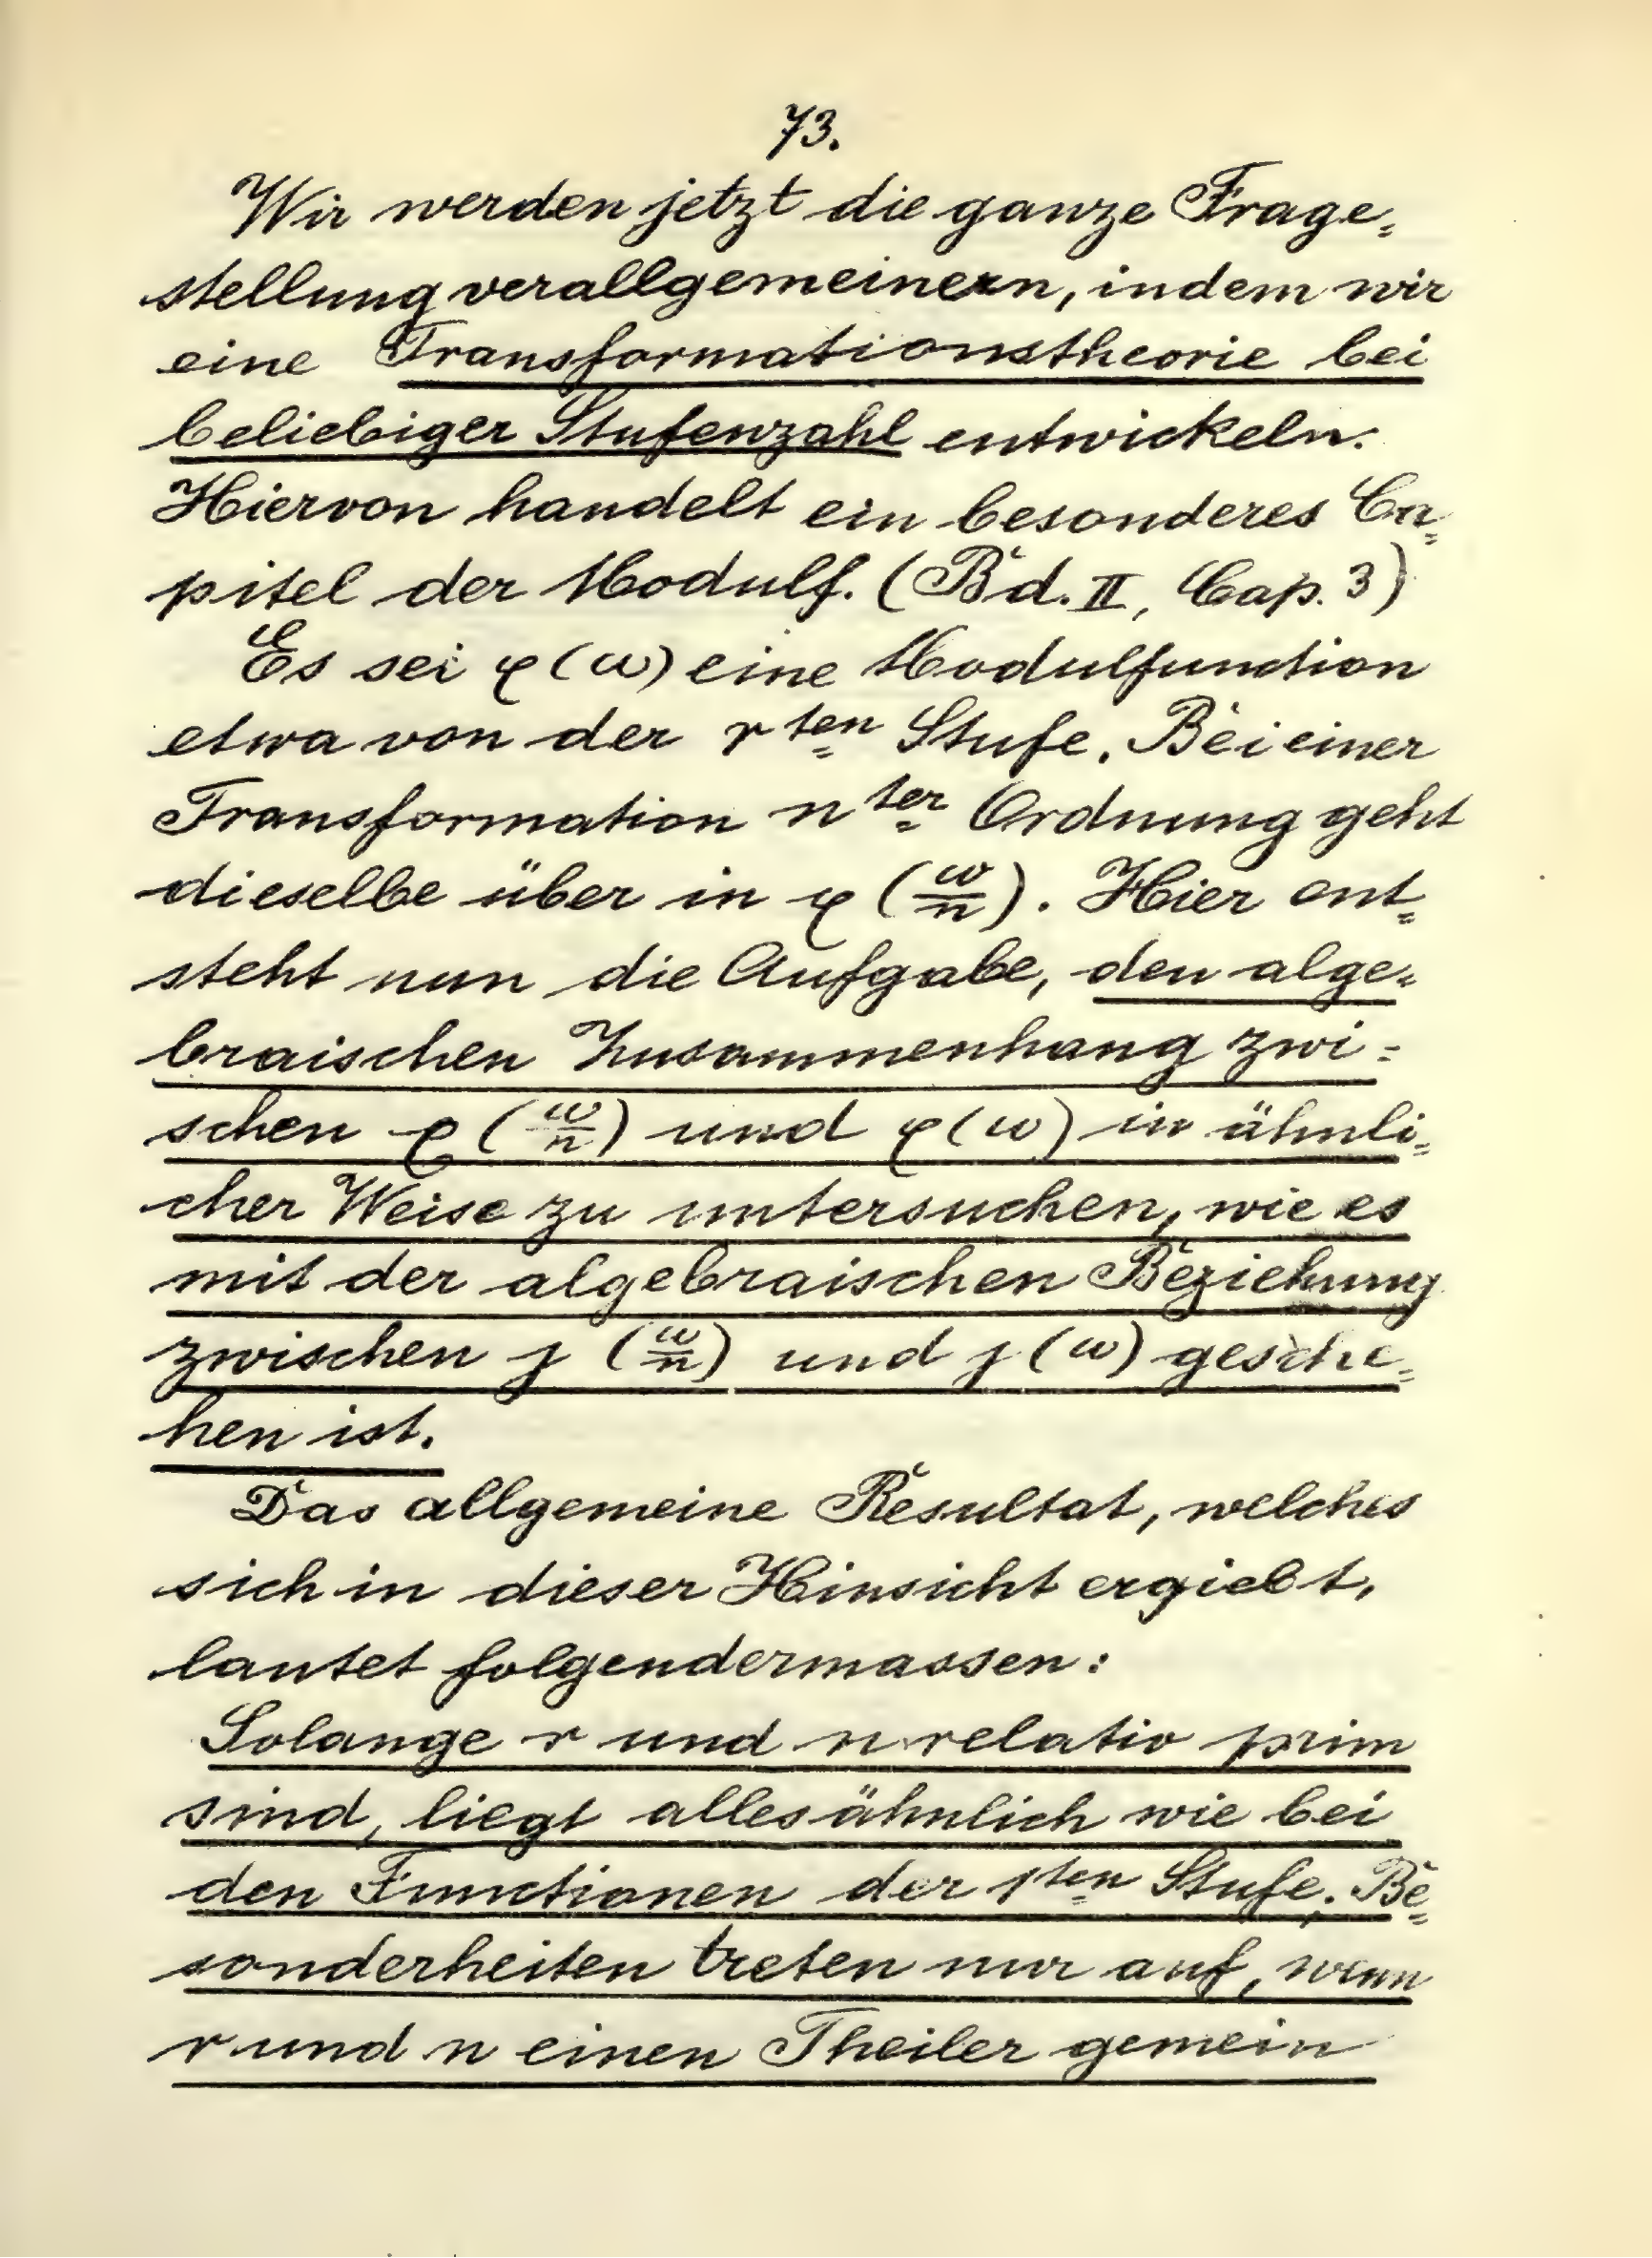 73.
Wir werden jetzt die ganze Frage=
stellung verallgemeinern, indem wir
eine Transformationstheorie bei
beliebiger Stufenzahl entwickeln.
Hiervon handelt ein besonderes Ca=
pitel der Modulf. (Bd. II, Cap. 3)
Es sei φ(ω) eine Modulfunction
etwa von der rten Stufe. Bei einer
Transformation nter Ordnung geht
dieselbe über in φ(ω/n). Hier ent=
steht nun die Aufgabe, den alge=
braischen Zusammenhang zwi=
schen φ(ω/n) und φ(ω) in ähnli=
cher Weise zu untersuchen, wie es
mit der algebraischen Beziehung
zwischen j(ω/n) und j(ω) gesche=
hen ist.
Das allgemeine Resultat, welches
sich in dieser Hinsicht ergiebt,
lautet folgendermassen:
Solange r und n relativ prim
sind, liegt alles ähnlich wie bei
den Functionen der 1ten Stufe. Be=
sonderheiten treten nur auf, wenn
r und n einen Theiler gemein